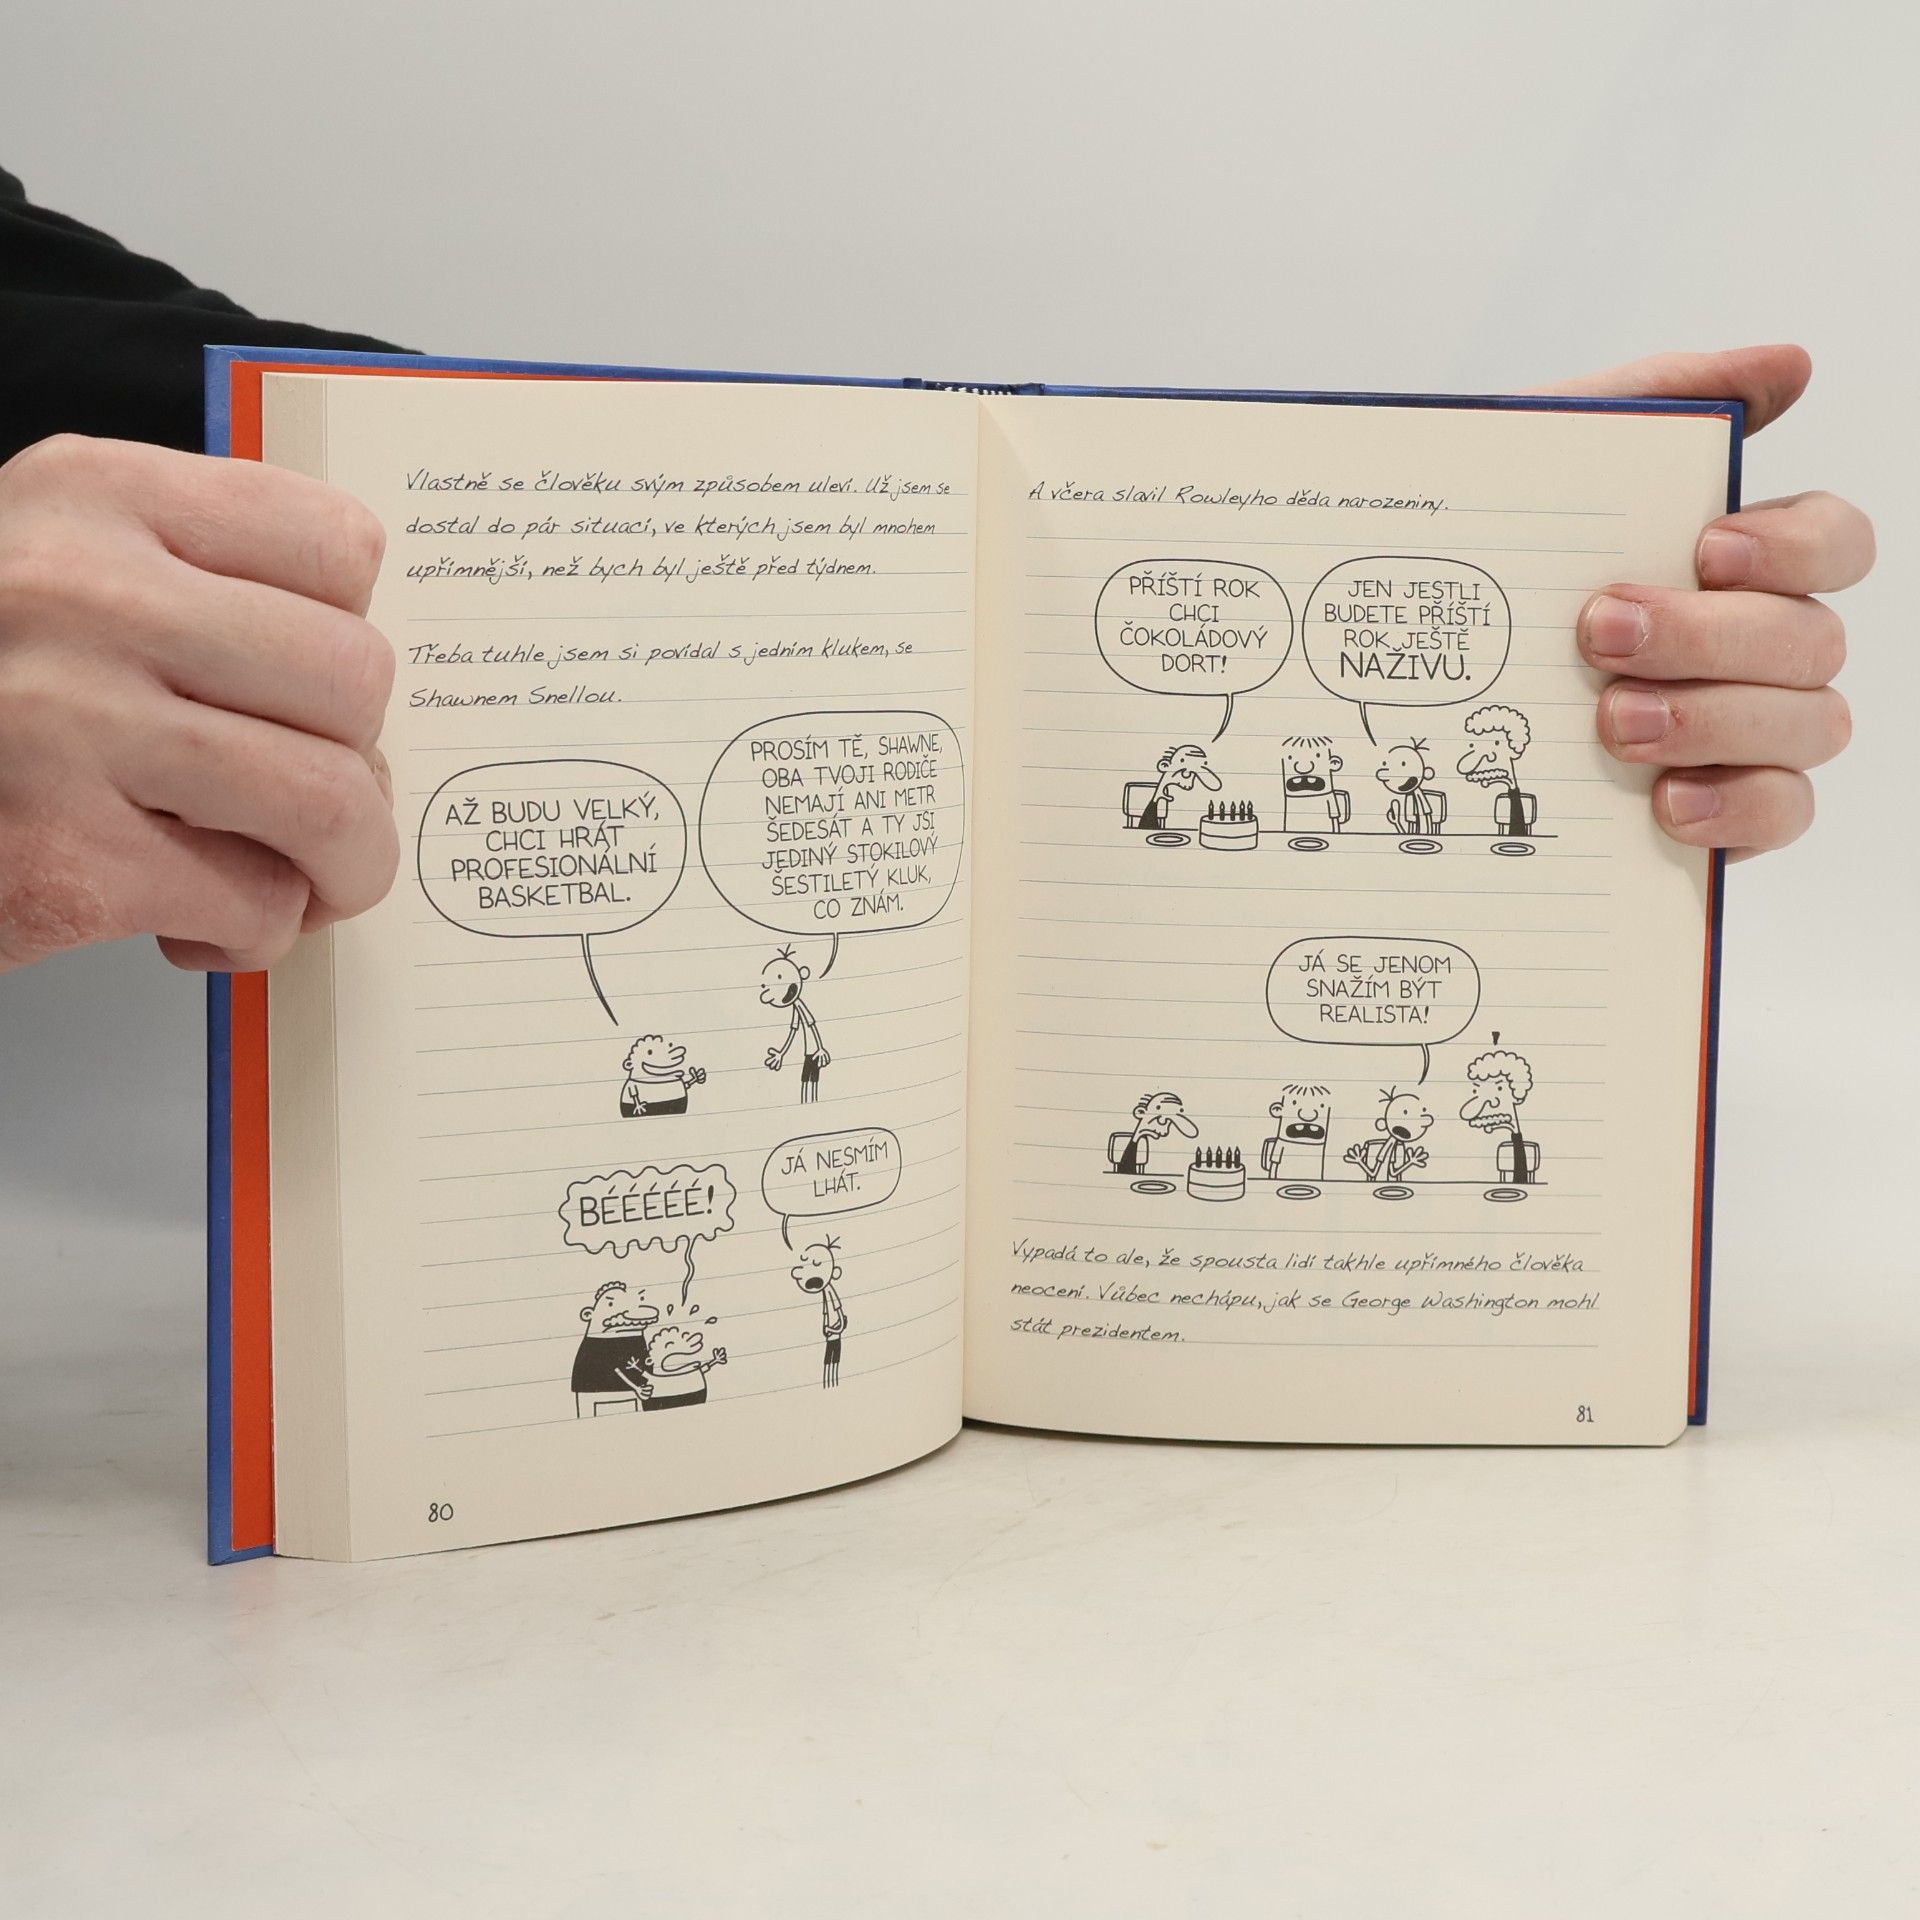 Vlastně se člověku svým způsobem uleví. Už jsem se
dostal do pár situací, ve kterých jsem byl mnohem
upřímnější, než bych byl ještě před týdnem.
Třeba tuhle jsem si povídal s jedním klukem, se
Shawnem Snellou.
AŽ BUDU VELKÝ,
CHCI HRÁT
PROFESIONÁLNÍ
BASKETBAL.
PROSÍM TĚ, SHAWNE,
OBA TVOJI RODIČE
NEMAJÍ ANI METR
ŠEDESÁT A TY JSI
JEDINÝ STOKILOVÝ
ŠESTILETÝ KLUK,
CO ZNÁM.
BÉÉÉÉÉ!
JÁ NESMÍM
LHÁT.
80
A včera slavil Rowleyho děda narozeniny.
PŘÍŠTÍ ROK
CHCI
ČOKOLÁDOVÝ
DORT!
JEN JESTLI
BUDETE PŘÍŠTÍ
ROK JEŠTĚ
NAŽIVU.
JÁ SE JENOM
SNAŽÍM BÝT
REALISTA!
Vypadá to ale, že spousta lidí takhle upřímného člověka
neocení. Vůbec nechápu, jak se George Washington mohl
stát prezidentem.
81